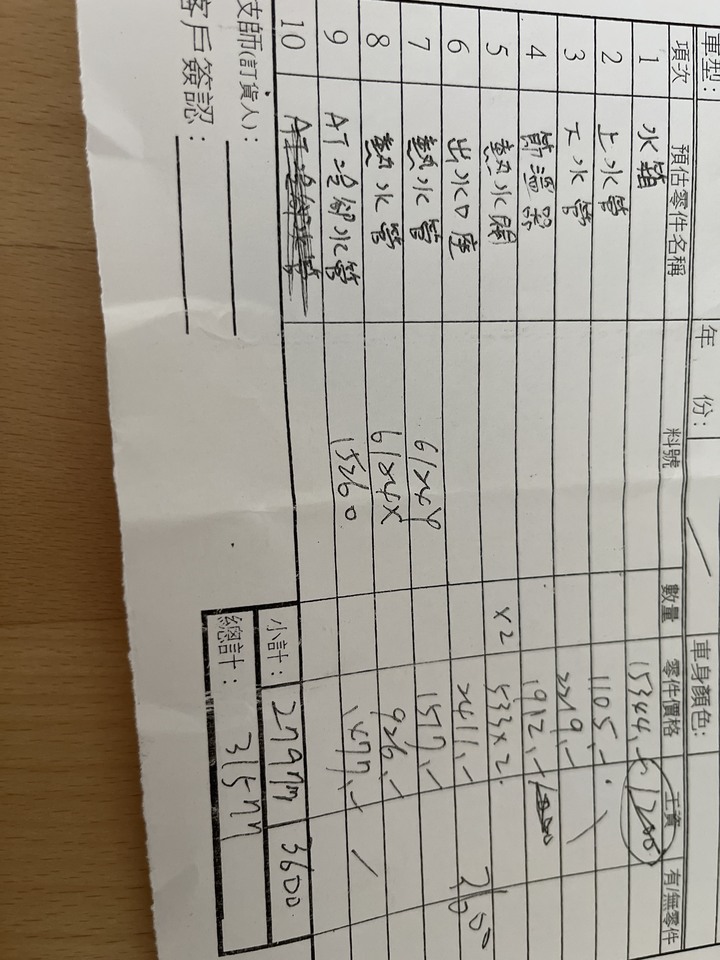 車型: 年 份: 車身顏色:
項次 預估零件名稱 料號 數量 零件價格 工資 有/無零件
1 水箱 15344.- 1200
2 上水管 1105.-
3 下水管 2219.-
4 節溫器 1912.-
5 熱水閥 x2 533x2.
6 出水口座 2411.- 2600
7 熱水管 61x44 1577.-
8 熱水管 61x4x 926.-
9 AT冷卻水管 15260 1477.-
10 AT冷卻水管
小計: 27977 3600
支師(訂貨人):
總計: 31577
客戶簽認: